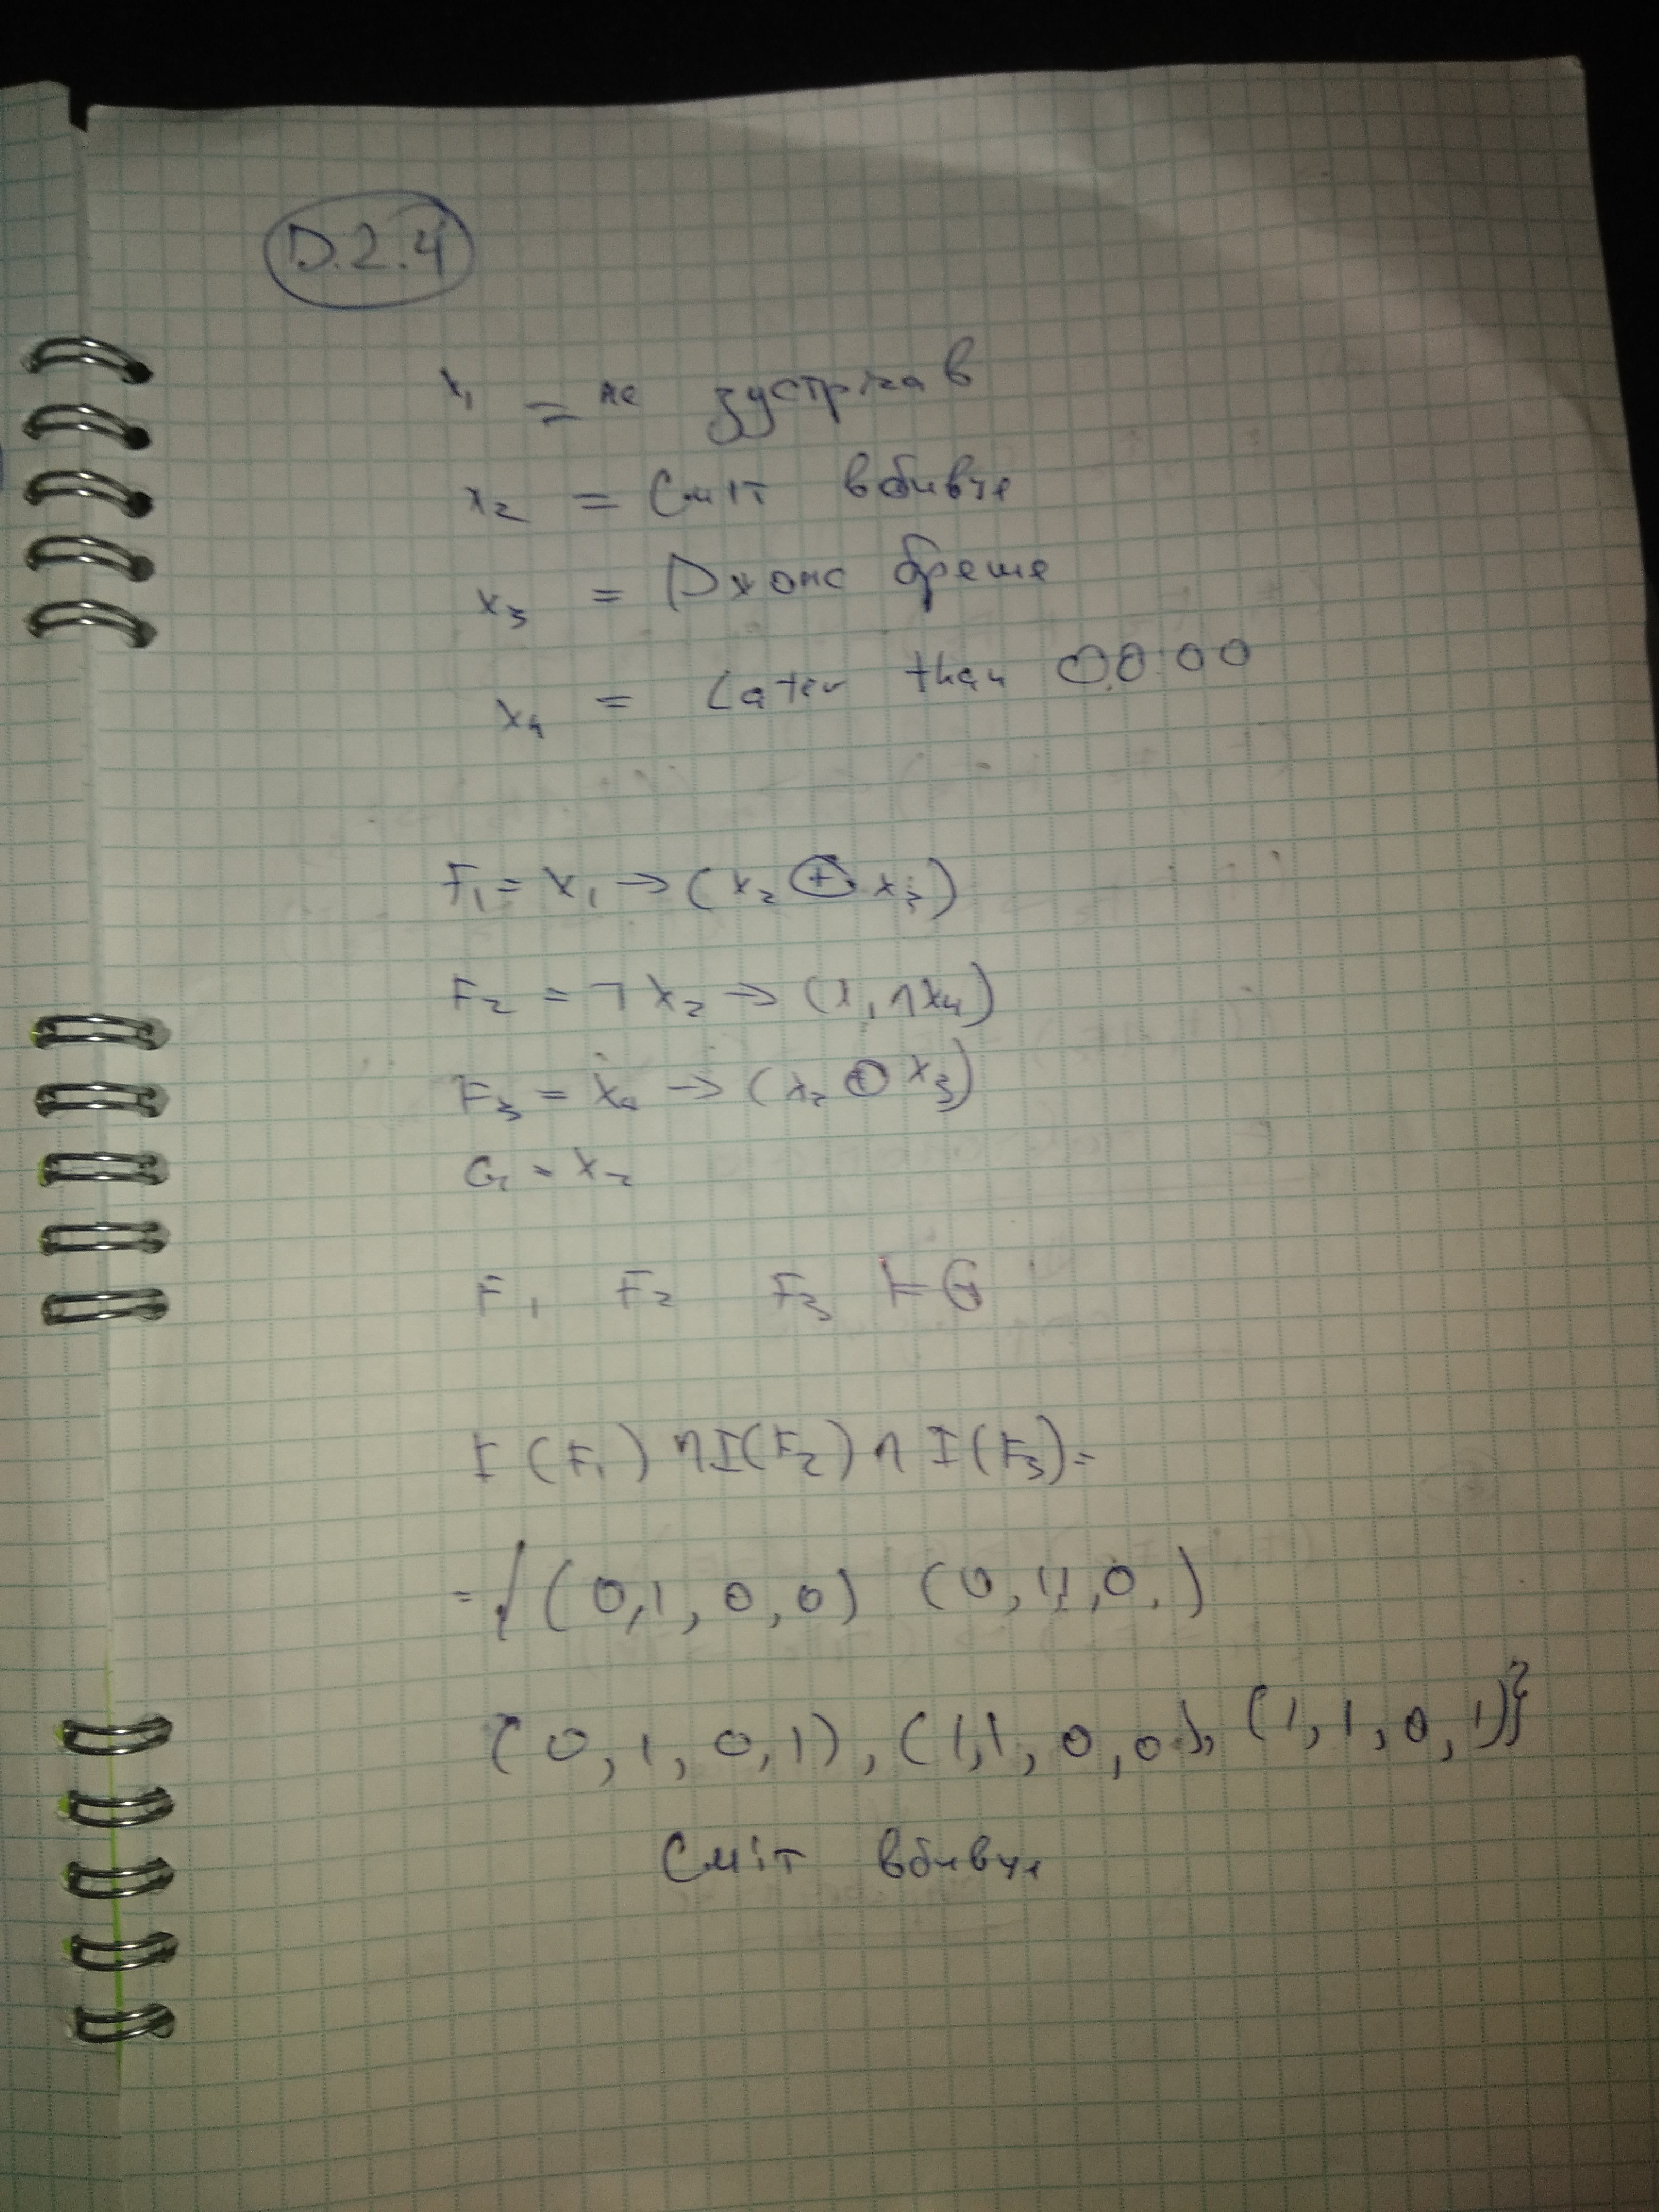 D.2.4
x₁ = не зустрічав
x₂ = Сміт вбивця
x₃ = Джонс бреше
x₄ = Later than 00:00
F₁ = x₁ → (x₂ ⊕ x₃)
F₂ = ¬x₂ → (x₁ ∧ x₄)
F₃ = x₄ → (x₂ ⊕ x₃)
G = x₂
F₁ F₂ F₃ ⊨ G
I(F₁) ∩ I(F₂) ∩ I(F₃) =
= {(0,1,0,0) (0,1,1,0,)
(0,1,0,1), (1,1,0,0), (1,1,0,1)}
Сміт вбивця